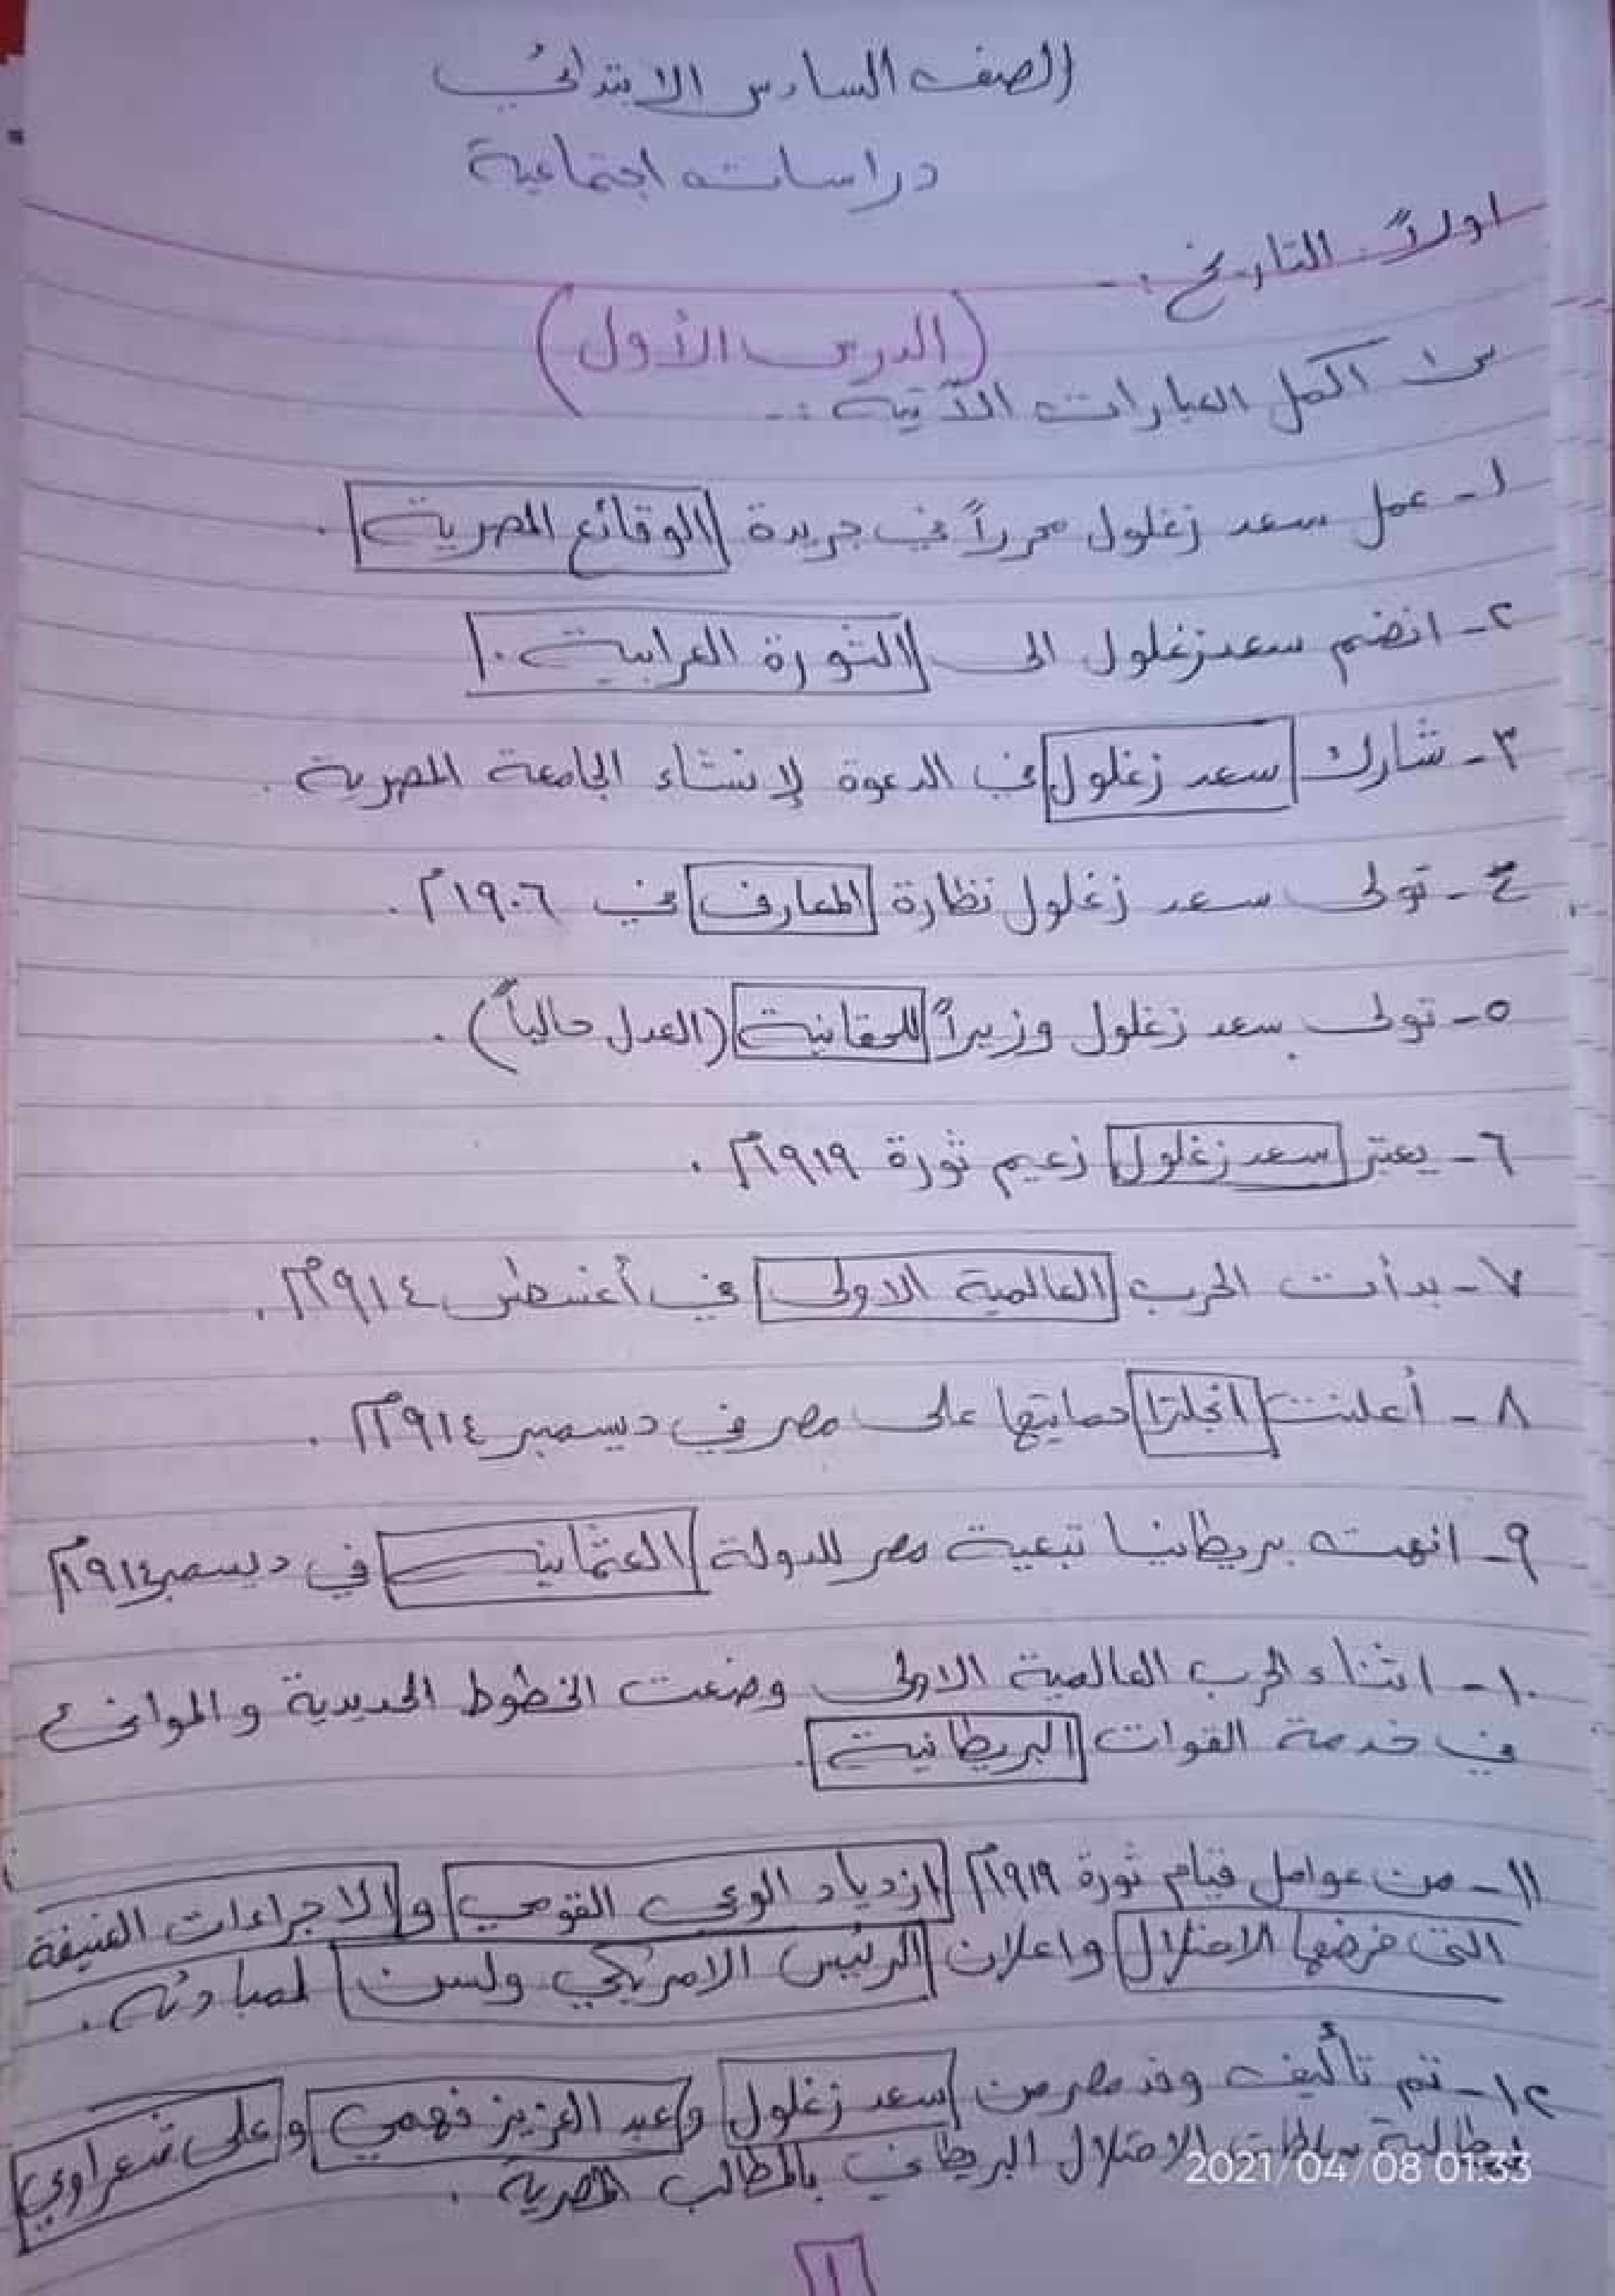 الصف السادس الابتدائي
دراسات اجتماعية
اولاً: التاريخ :-
(الدرس الأول)
س١ اكمل العبارات الآتية :-
١- عمل سعد زغلول محرراً في جريدة الوقائع المصرية .
٢- انضم سعد زغلول الى الثورة العرابية .
٣- شارك سعد زغلول في الدعوة لإنشاء الجامعة المصرية .
٤- تولى سعد زغلول نظارة المعارف في ١٩٠٦م .
٥- تولى سعد زغلول وزيراً للحقانية (العدل حالياً) .
٦- يعتبر سعد زغلول زعيم ثورة ١٩١٩م .
٧- بدأت الحرب العالمية الاولى في أغسطس ١٩١٤م .
٨- أعلنت انجلترا حمايتها على مصر في ديسمبر ١٩١٤م .
٩- انهت بريطانيا تبعية مصر للدولة العثمانية في ديسمبر ١٩١٤م
١٠- اثناء الحرب العالمية الاولى وضعت الخطوط الحديدية والموانئ
في خدمة القوات البريطانية .
١١- من عوامل قيام ثورة ١٩١٩م ازدياد الوعي القومي والاجراءات العنيفة
التى فرضها الاحتلال واعلان الرئيس الامريكي ولسن لمبادئه .
١٢- تم تأليف وفد مصر من سعد زغلول وعبد العزيز فهمي وعلى شعراوي
لمطالبة سلطات الاحتلال البريطاني بالمطالب المصرية .
2021/04/08 01:33
١